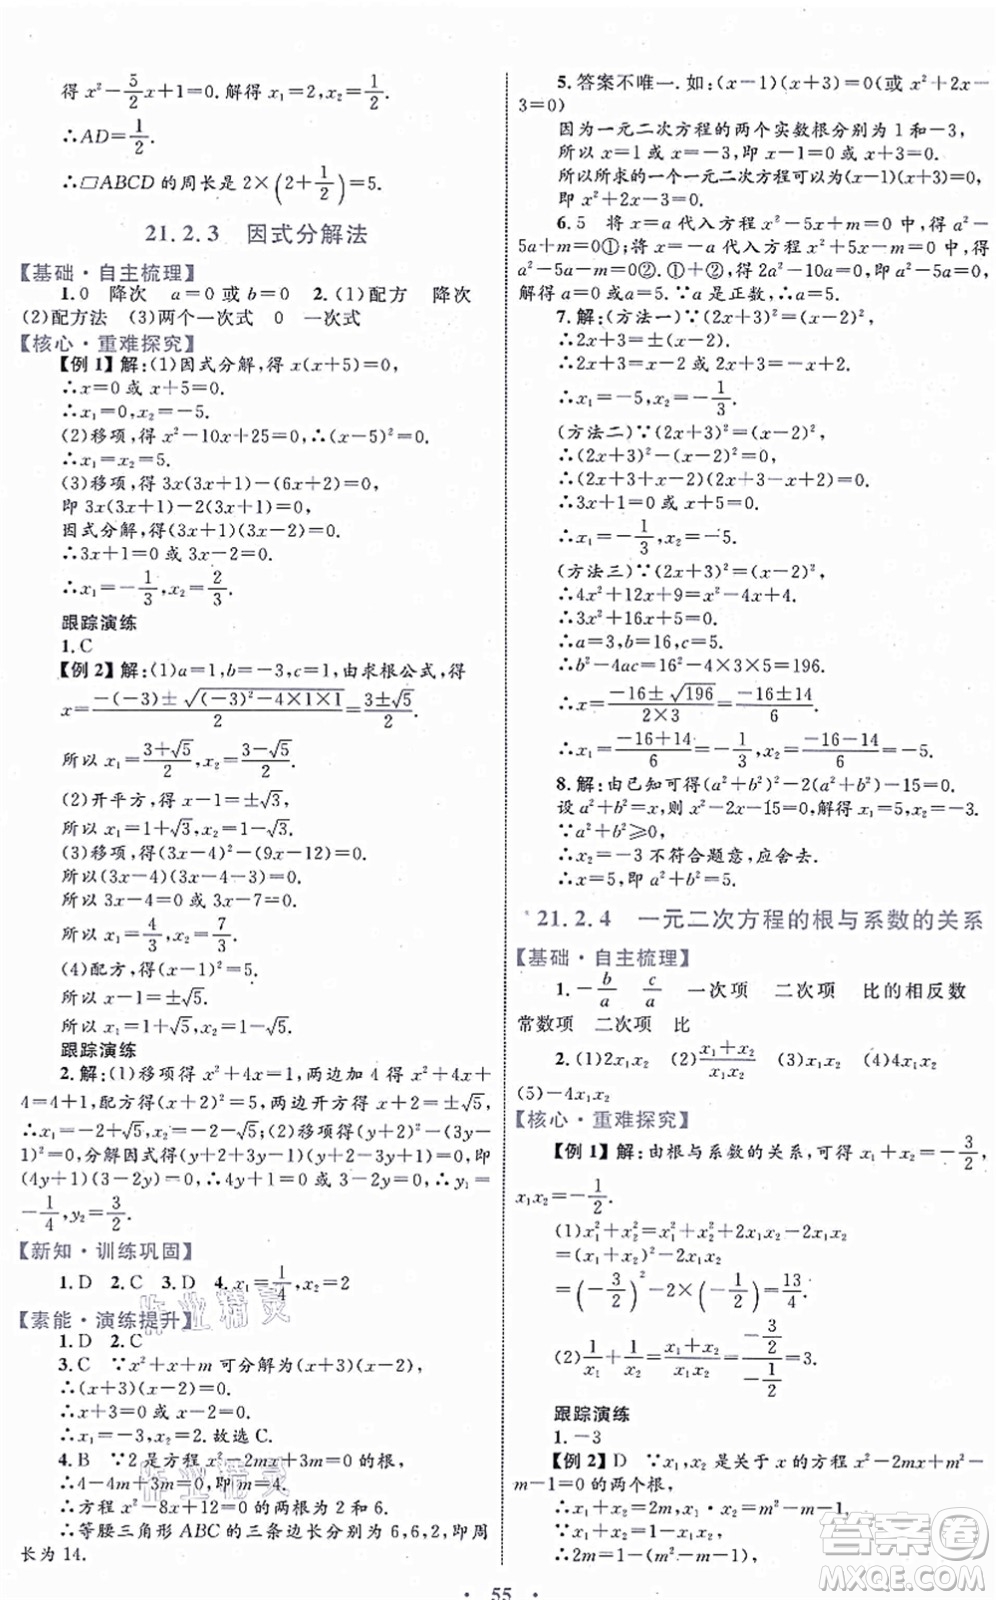 得 x²－5/2x＋1＝0. 解得 x₁＝2, x₂＝1/2.
∴AD＝1/2.
∴▱ABCD 的周长是 2×(2＋1/2)＝5.
21.2.3 因式分解法
【基础·自主梳理】
1.0 降次 a＝0 或 b＝0 2.(1)配方 降次
(2)配方法 (3)两个一次式 0 一次式
【核心·重难探究】
【例 1】解:(1)因式分解,得 x(x＋5)＝0,
∴x＝0 或 x＋5＝0.
∴x₁＝0,x₂＝－5.
(2)移项,得 x²－10x＋25＝0,∴(x－5)²＝0.
∴x₁＝x₂＝5.
(3)移项,得 3x(3x＋1)－(6x＋2)＝0,
即 3x(3x＋1)－2(3x＋1)＝0,
因式分解,得(3x＋1)(3x－2)＝0.
∴3x＋1＝0 或 3x－2＝0.
∴x₁＝－1/3,x₂＝2/3.
跟踪演练
1.C
【例 2】解:(1)a＝1,b＝－3,c＝1,由求根公式,得
x＝(－(－3)±√((－3)²－4×1×1))/2＝(3±√5)/2.
所以 x₁＝(3＋√5)/2,x₂＝(3－√5)/2.
(2)开平方,得 x－1＝±√3,
所以 x₁＝1＋√3,x₂＝1－√3.
(3)移项,得(3x－4)²－(9x－12)＝0.
所以(3x－4)(3x－4－3)＝0.
所以 3x－4＝0 或 3x－7＝0.
所以 x₁＝4/3,x₂＝7/3.
(4)配方,得(x－1)²＝5.
所以 x－1＝±√5.
所以 x₁＝1＋√5,x₂＝1－√5.
跟踪演练
2.解:(1)移项得 x²＋4x＝1,两边加 4 得 x²＋4x＋
4＝4＋1,配方得(x＋2)²＝5,两边开方得 x＋2＝±√5,
∴x₁＝－2＋√5,x₂＝－2－√5;(2)移项得(y＋2)²－(3y－
1)²＝0,分解因式得(y＋2＋3y－1)(y＋2－3y＋1)＝0,即
(4y＋1)(3－2y)＝0,∴4y＋1＝0 或 3－2y＝0,∴y₁＝
－1/4,y₂＝3/2.
【新知·训练巩固】
1.D 2.C 3.D 4.x₁＝1/4,x₂＝2
【素能·演练提升】
1.D 2.C
3.C ∵x²＋x＋m 可分解为(x＋3)(x－2),
∴(x＋3)(x－2)＝0.
∴x＋3＝0,或 x－2＝0.
∴x₁＝－3,x₂＝2.故选 C.
4.B ∵2 是方程 x²－2mx＋3m＝0 的根,
∴4－4m＋3m＝0,即 m＝4.
∴方程 x²－8x＋12＝0 的根为 2 和 6.
∴等腰三角形 ABC 的三条边长分别为 6,6,2,即周
长为 14.
5.答案不唯一.如:(x－1)(x＋3)＝0(或 x²＋2x－
3＝0)
因为一元二次方程的两个实数根分别为 1 和－3,
所以 x＝1 或 x＝－3,即 x－1＝0 或 x＋3＝0.
所以所求的一个一元二次方程可以为(x－1)(x＋3)＝0,
即 x²＋2x－3＝0.
6.5 将 x＝a 代入方程 x²－5x＋m＝0,得 a²－
5a＋m＝0①;将 x＝－a 代入方程 x²＋5x－m＝0,得 a²－
5a－m＝0②.①＋②,得 2a²－10a＝0,即 a²－5a＝0,
解得 a＝0 或 a＝5.∵a 是正数,∴a＝5.
7.解:(方法一)∵(2x＋3)²＝x²－4x＋4,
∴2x＋3＝±(x－2).
∴2x＋3＝x－2 或 2x＋3＝－x＋2.
∴x₁＝－5,x₂＝－1/3.
(方法二)∵(2x＋3)²＝x²－4x＋4,
∴(2x＋3)²－(x－2)²＝0.
∴(2x＋3＋x－2)(2x＋3－x＋2)＝0.
∴3x＋1＝0 或 x＋5＝0.
∴x₁＝－1/3,x₂＝－5.
(方法三)∵(2x＋3)²＝x²－4x＋4,
∴4x²＋12x＋9＝x²－4x＋4.
∴3x²＋16x＋5＝0.
∴a＝3,b＝16,c＝5.
∴b²－4ac＝16²－4×3×5＝196.
∴x＝(－16±√196)/(2×3)＝(－16±14)/6.
∴x₁＝(－16＋14)/6＝－1/3,x₂＝(－16－14)/6＝－5.
8.解:由已知可得(a²＋b²)²－2(a²＋b²)－15＝0.
设 a²＋b²＝x,则 x²－2x－15＝0,解得 x₁＝5,x₂＝－3.
∵a²＋b²≥0,
∴x₂＝－3 不符合题意,应舍去.
∴x＝5,即 a²＋b²＝5.
21.2.4 一元二次方程的根与系数的关系
【基础·自主梳理】
1.－b/a c/a 一次项 二次项 比的相反数
常数项 二次项 比
2.(1)2x₁x₂ (2)(x₁＋x₂)/(x₁x₂) (3)x₁x₂ (4)4x₁x₂
(5)－4x₁x₂
【核心·重难探究】
【例 1】解:由根与系数的关系,可得 x₁＋x₂＝－3/2,
x₁x₂＝－1/2.
(1)x₁²＋x₂²＝x₁²＋x₂²＋2x₁x₂－2x₁x₂
＝(x₁＋x₂)²－2x₁x₂
＝(－3/2)²－2×(－1/2)＝13/4.
(2)1/x₁＋1/x₂＝(x₁＋x₂)/(x₁x₂)＝(－3/2)/(－1/2)＝3.
跟踪演练
1.－3
【例 2】D ∵x₁,x₂ 是关于 x 的方程 x²－2mx＋m²－
m－1＝0 的两个根,
∴x₁＋x₂＝2m,x₁x₂＝m²－m－1.
∵x₁＋x₂＝1－x₁x₂,
∴2m＝1－(m²－m－1),
· 55 ·
作业精灵
作业精灵
答案卷
MXQE.COM